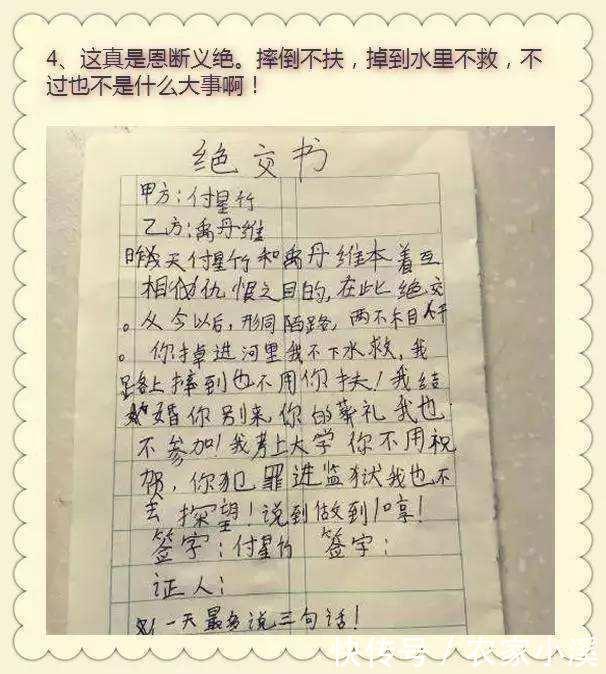 4、这真是恩断义绝。摔倒不扶，掉到水里不救，不
过也不是什么大事啊！
绝交书
甲方：付星竹
乙方：禹丹维
昨天付星竹和禹丹维本着互
相仇恨之目的，在此绝交
。从今以后，形同陌路，两不相干
。你掉进河里我不下水救，我
路上摔到也不用你扶！我结
婚你别来你的葬礼我也
不参加！我考上大学你不用祝
贺，你犯罪进监狱我也不
去探望！说到做到！哼！
签字：付星竹 签字：
证人：
一天最多说三句话！
快传号／农家小溪